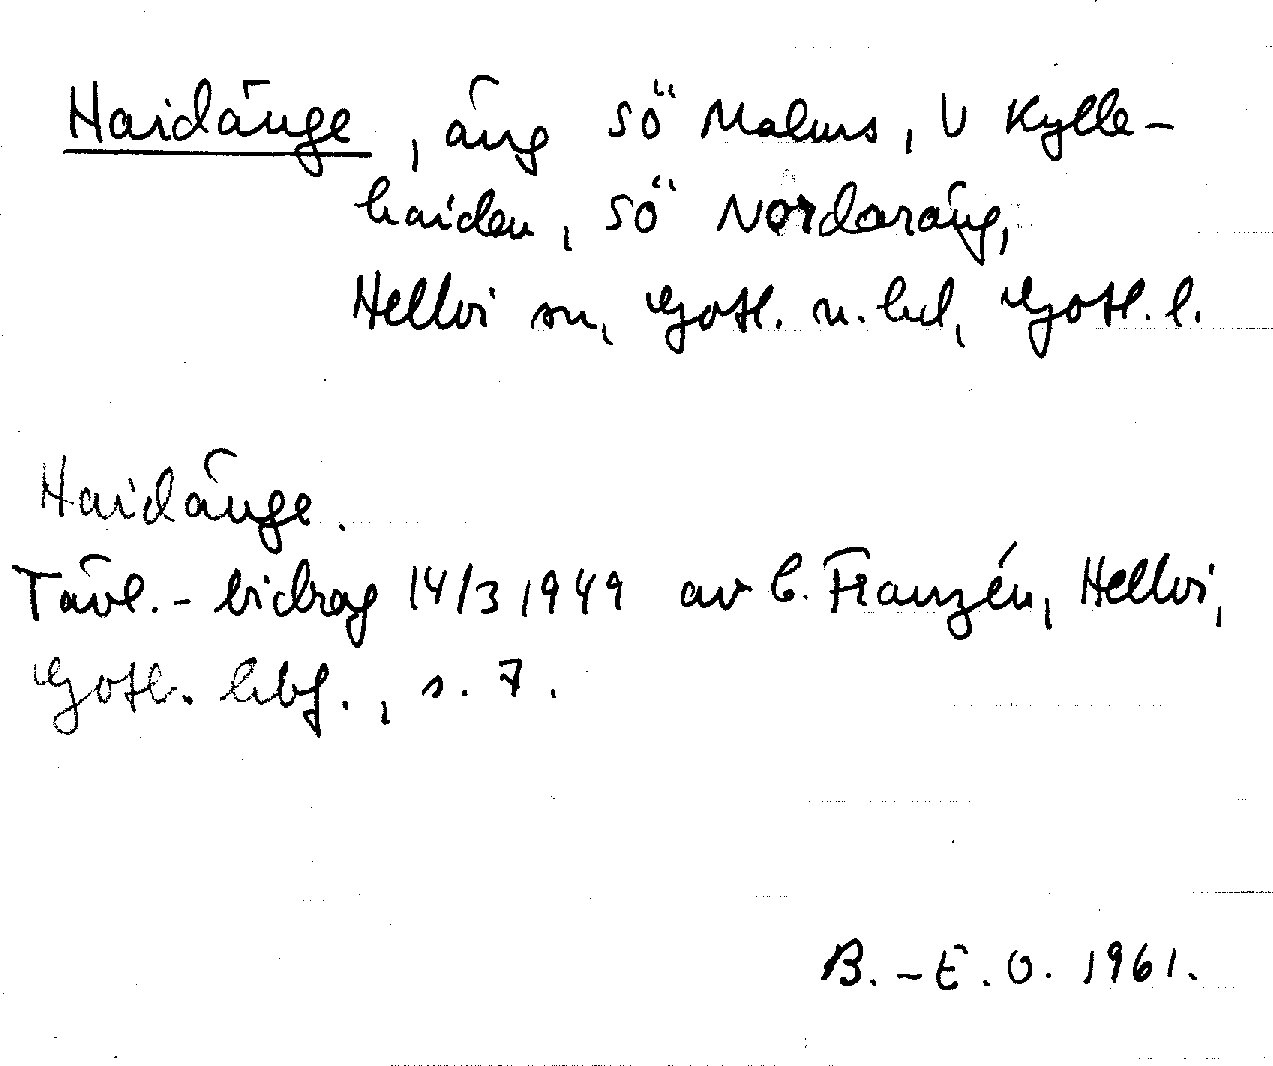 Haidänge, äng SÖ Malms, V Kylle-
haiden, SÖ Nordaräng,
Hellvi sn, Gotl. n. hd, Gotl. l.
Haidänge.
Tävl.-bidrag 14/3 1949 av C. Franzén, Hellvi,
Gotl. hbf., s. 7.
B.-E. O. 1961.